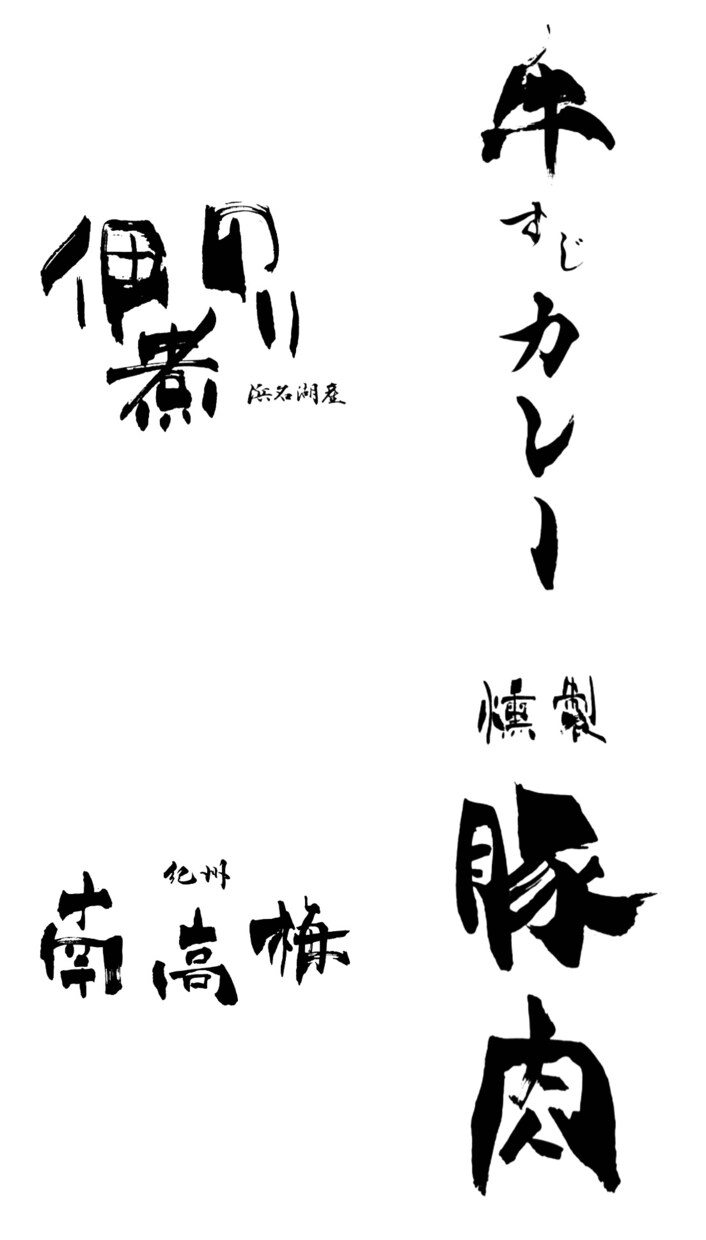 牛すじカレー
のり
佃煮
浜名湖産
燻製
豚肉
紀州
南高梅